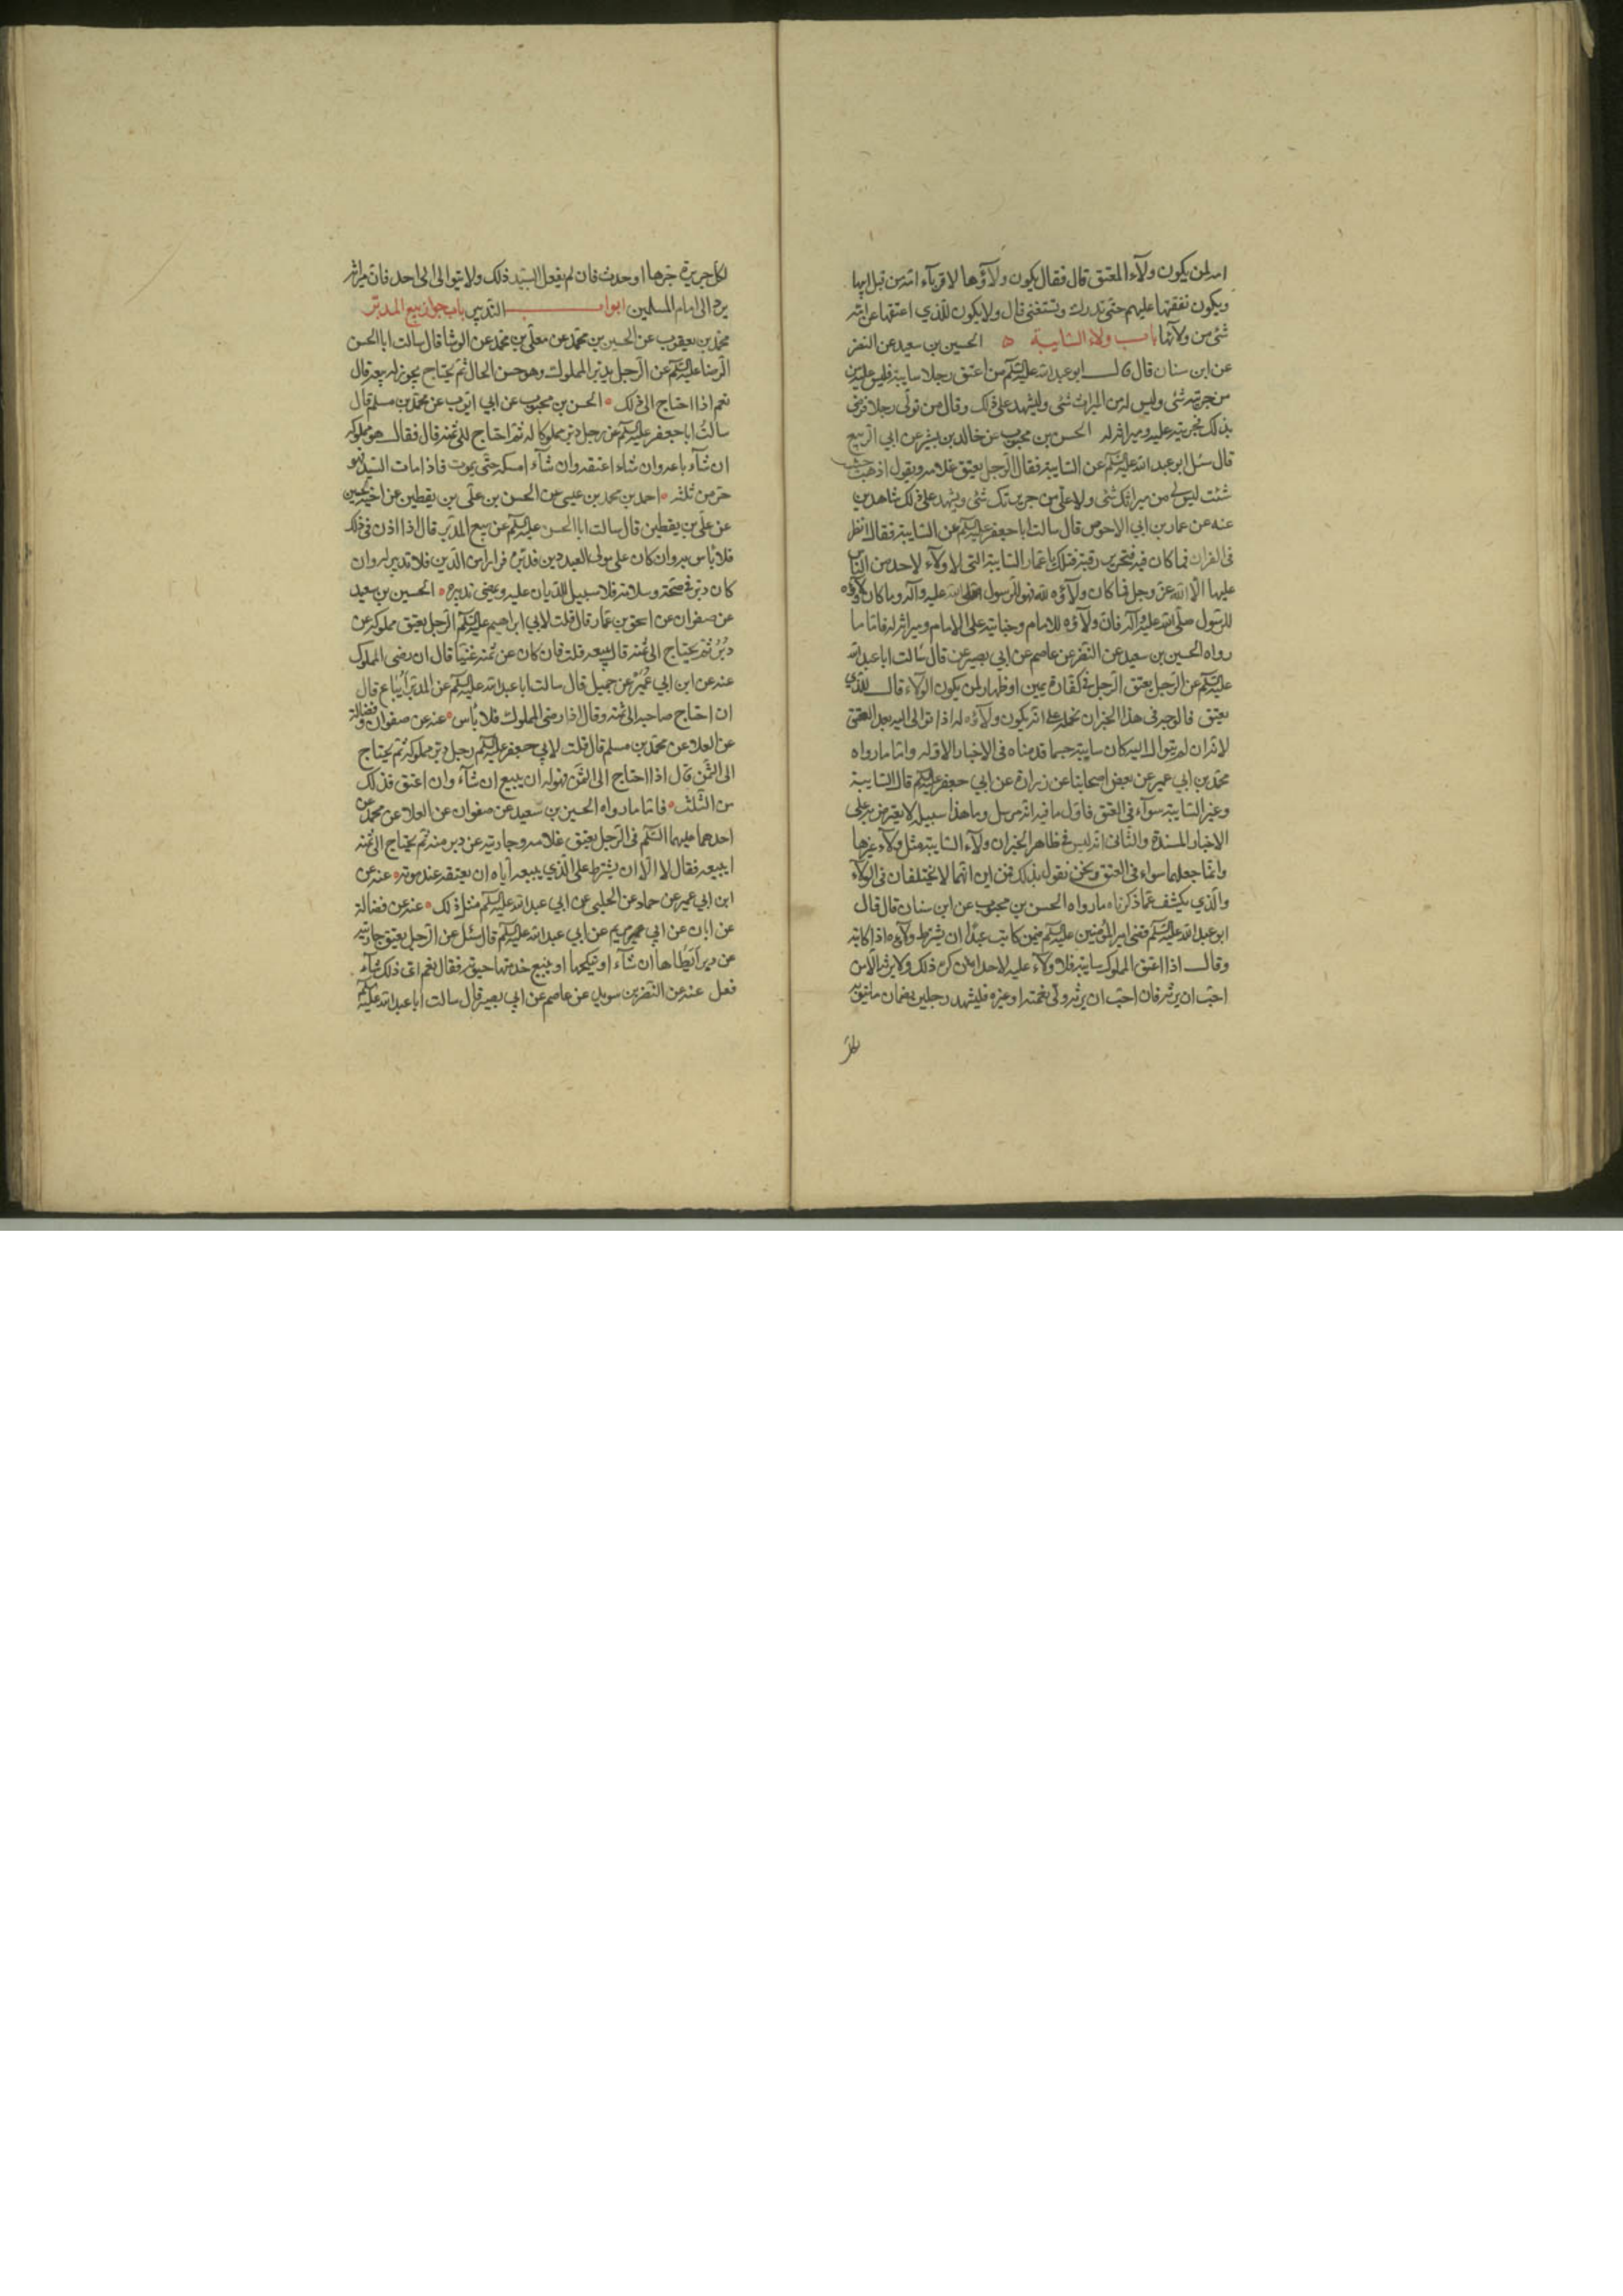 امه لمن يكون ولآء المعتق قال فقال يكون ولآؤها لاقربآء امه من قبل ابيها
ويكون نفقتها عليهم حتى تدرك وتستغنى قال ولا يكون للذي اعتقها عن امه
شئ من ولآئها باب ولاء السايبة ه الحسين بن سعيد عن النضر
عن ابن سنان قال قال ابو عبد الله عليه السلم من اعتق رجلا سايبة فليس عليه من
من جريرته شئ وليس له من الميراث شئ وليشهد على ذلك وقال من تولى رجلا فرضى
بذلك فجريرته عليه وميراثه له الحسن بن محبوب عن خالد بن بشير عن ابي الربيع
قال سئل ابو عبد الله عليه السلم عن السايبة فقال الرجل يعتق غلامه ويقول اذهب حيث
شئت ليس لى من ميراثك شئ ولا على من جريرتك شئ ويشهد على ذلك شاهدين
عنه عن عمار بن ابي الاحوص قال سالت ابا جعفر عليه السلم عن السايبة فقال انظر
فى القران فما كان فيه فتحرير رقبة فتلك يا عمار السايبة التى لا ولآء لاحد من الناس
عليها الا الله عز وجل فما كان ولآؤه لله فهو للرسول صلى الله عليه وآله وما كان ولآؤه
للرسول صلى الله عليه وآله فان ولآؤه للامام وجنايته على الامام وميراثه له فاما ما
رواه الحسين بن سعيد عن النضر عن عاصم عن ابي بصير عن قال سالت ابا عبد الله
عليه السلم عن الرجل يعتق الرجل فى كفارة يمين او ظهار لمن يكون الولآء قال للذي
يعتق فالوجه فى هذا الخبر ان نحمله على انه يكون ولآؤه له اذا توالى اليه بعد العتق
لانه ان لم يتوال اليه كان سايبة حسبما قدمناه فى الاخبار الاوله واما ما رواه
محمد بن ابي عمير عن بعض اصحابنا عن زرارة عن ابي جعفر عليه السلم قال السايبة
وغير السايبة سوآء فى العتق فاول ما فيه انه مرسل وما هذا سبيله لا يعترض به على
الاخبار المسندة والثانى انه ليس فى ظاهر الخبر ان ولآء السايبة مثل ولآء غيرها
وانما جعلهما سواء فى العتق ونحن نقول بذلك فمن اين انهما لا يختلفان فى الولآء
والذي يكشف عما ذكرناه ما رواه الحسن بن محبوب عن ابن سنان قال قال
ابو عبد الله عليه السلم قضى امير المؤمنين عليه السلم فيمن كاتب عبدا ان يشترط ولآؤه اذا كاتبه
وقال اذا اعتق المملوك سايبة فلا ولآء عليه لاحد ان كره ذلك ولا يرثه الا من
احب ان يرثه فان احب ان يرثه ولى نعمته او غيره فليشهد رجلين بضمان ما ينوبه
لكل جريرة جرها او حدث فان لم يفعل السيد ذلك ولا يتوالى الى احد فان ميراثه
يرد الى امام المسلمين ابواب التدبير باب جواز بيع المدبر
محمد بن يعقوب عن الحسين بن محمد عن معلى بن محمد عن الوشا قال سالت ابا الحسن
الرضا عليه السلم عن الرجل يدبر المملوك وهو حسن الحال ثم يحتاج يجوز له بيعه قال
نعم اذا احتاج الى ذلك ه الحسن بن محبوب عن ابي ايوب عن محمد بن مسلم قال
سالت ابا جعفر عليه السلم عن رجل دبر مملوكا له ثم احتاج الى ثمنه قال فقال هو مملوكه
ان شآء باعه وان شاء اعتقه وان شآء امسكه حتى يموت فاذا مات السيد فهو
حر من ثلثه ه احمد بن محمد بن عيسى عن الحسن بن على بن يقطين عن اخيه الحسين
عن على بن يقطين قال سالت ابا الحسن عليه السلم عن بيع المدبر قال اذا اذن فى ذلك
فلا باس به وان كان على مولى العبد دين فدبره فرارا من الدين فلا تدبير له وان
كان دبره فى صحة وسلامة فلا سبيل للديان عليه ويمضى تدبيره ه الحسين بن سعيد
عن صفوان عن اسحق بن عمار قال قلت لابي ابراهيم عليه السلم الرجل يعتق مملوكه عن
دبر ثم يحتاج الى ثمنه قال يبيعه قلت فان كان عن ثمنه غنيا قال ان رضى المملوك
عنه عن ابن ابي عمير عن جميل قال سالت ابا عبد الله عليه السلم عن المدبر ايباع قال
ان احتاج صاحبه الى ثمنه وقال اذا رضى المملوك فلا باس ه عنه عن صفوان وفضالة
عن العلا عن محمد بن مسلم قال قلت لابي جعفر عليه السلم رجل دبر مملوكه ثم يحتاج
الى الثمن قال اذا احتاج الى الثمن فهو له ان يبيع ان شآء وان اعتق فذلك
من الثلث ه فاما ما رواه الحسين بن سعيد عن صفوان عن العلا عن محمد عن
احدهما عليهما السلم فى الرجل يعتق غلامه وجاريته عن دبر منه ثم يحتاج الى ثمنه
ايبيعه فقال لا الا ان يشترط على الذي يبيعه اياه ان يعتقه عند موته ه عنه عن
ابن ابي عمير عن حماد عن الحلبى عن ابي عبد الله عليه السلم مثل ذلك ه عنه عن فضالة
عن ابان عن ابي مريم عن ابي عبد الله عليه السلم قال سئل عن الرجل يعتق جاريته
عن دبر ايطأها ان شآء او ينكحها او يبيع خدمتها حيوته فقال نعم اى ذلك شآء
فعل عنه عن النضر بن سويد عن عاصم عن ابي بصير قال سالت ابا عبد الله عليه السلم